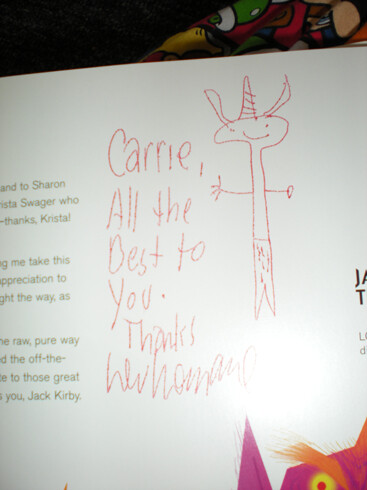 and to Sharon
rista Swager who
–thanks, Krista!
ng me take this
appreciation to
ght the way, as
he raw, pure way
ed the off-the-
te to those great
s you, Jack Kirby.
Carrie,
All the
Best to
You.
Thanks
JA
T
LO
d